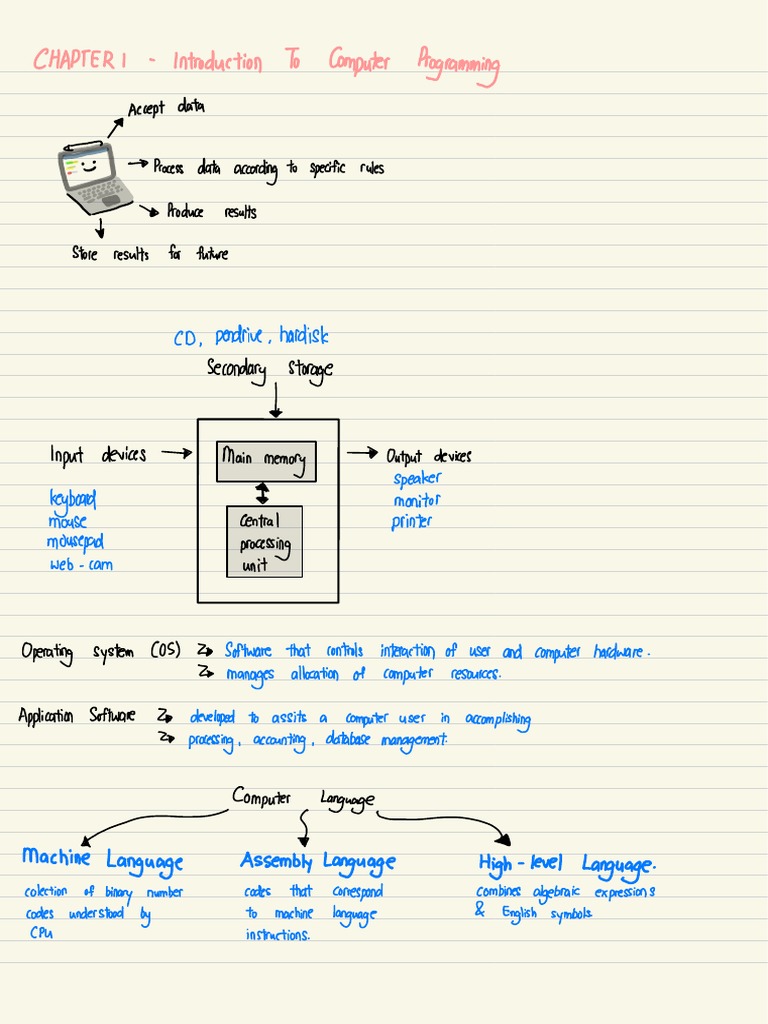 CHAPTER 1 - Introduction To Computer Programming
Accept data
Process data according to specific rules
Produce results
Store results for future
CD, pendrive, hardisk
Secondary storage
Input devices
keyboard
mouse
mousepad
web-cam
Main memory
Central
processing
unit
Output devices
speaker
monitor
printer
Operating system (OS)
Software that controls interaction of user and computer hardware.
manages allocation of computer resources.
Application Software
developed to assits a computer user in accomplishing
processing, accounting, database management.
Computer Language
Machine Language
colection of binary number
codes understood by
CPU
Assembly Language
codes that correspond
to machine language
instructions.
High-level Language.
combines algebraic expressions
& English symbols